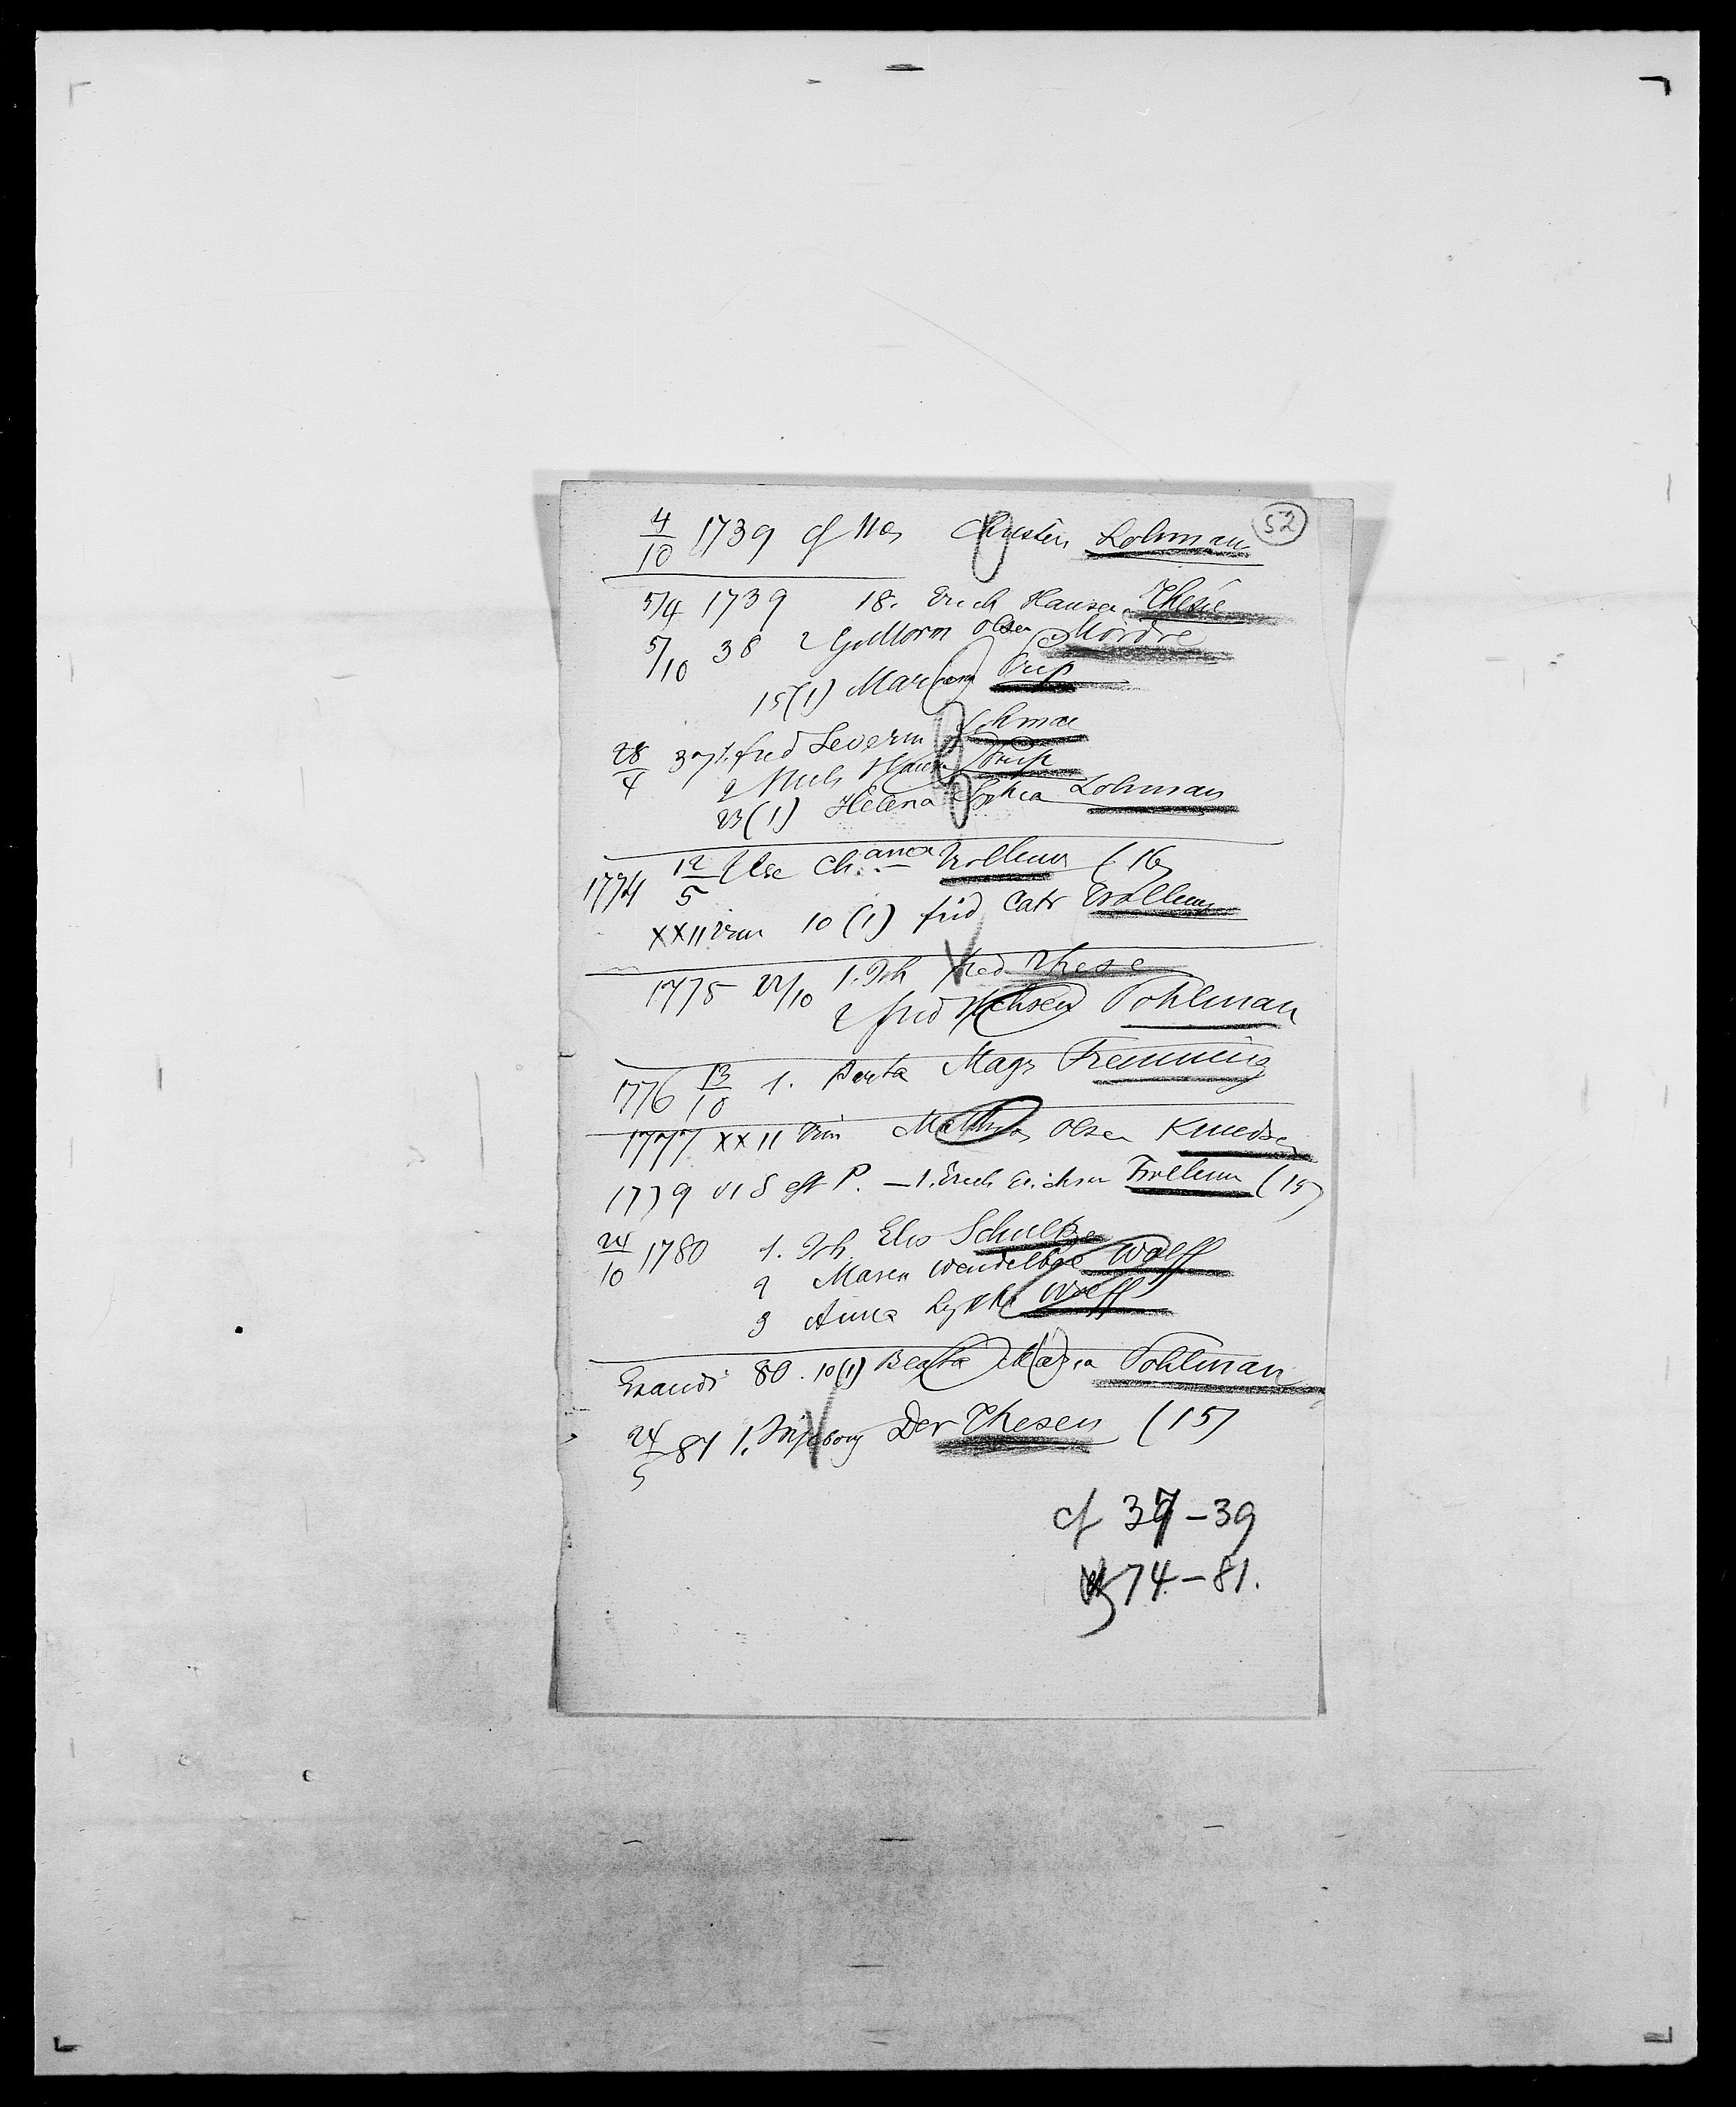 52
4/10 1739 cf Christen Lohman
5/4 1739 18. Erich Hansen Thesie
5/10 38 2 Guttorm Olsen Mordre
15(1) Mar Trip
28/4 37 1. fred Severin Lohman
2 Niels Hans Trip
23(1) Helena Sophia Lohman
1774 12/5 Else Ch. anna Trollum (16
XXII Trin 10 (1) frid Catr Trollum
1775 22/10 1. Joh fred Thesen
2 frid Pohlman
1776 13/10 1. Berta Magr Fremming
1777 XXII Trin Mathias Olsen Knudsen
1779 VI S eft P. — 1. Erich Erichsen Trollum (15)
24/10 1780 1. Joh. Elis Schultze
2 Maren Wendelboe Wolff
3 Anna Lyche Wolff
Exaudi 80. 10(1) Beata Maria Pohlman
24/5 81 1. Ingeborg Dor Thesen (15)
cf 37–39
74–81.